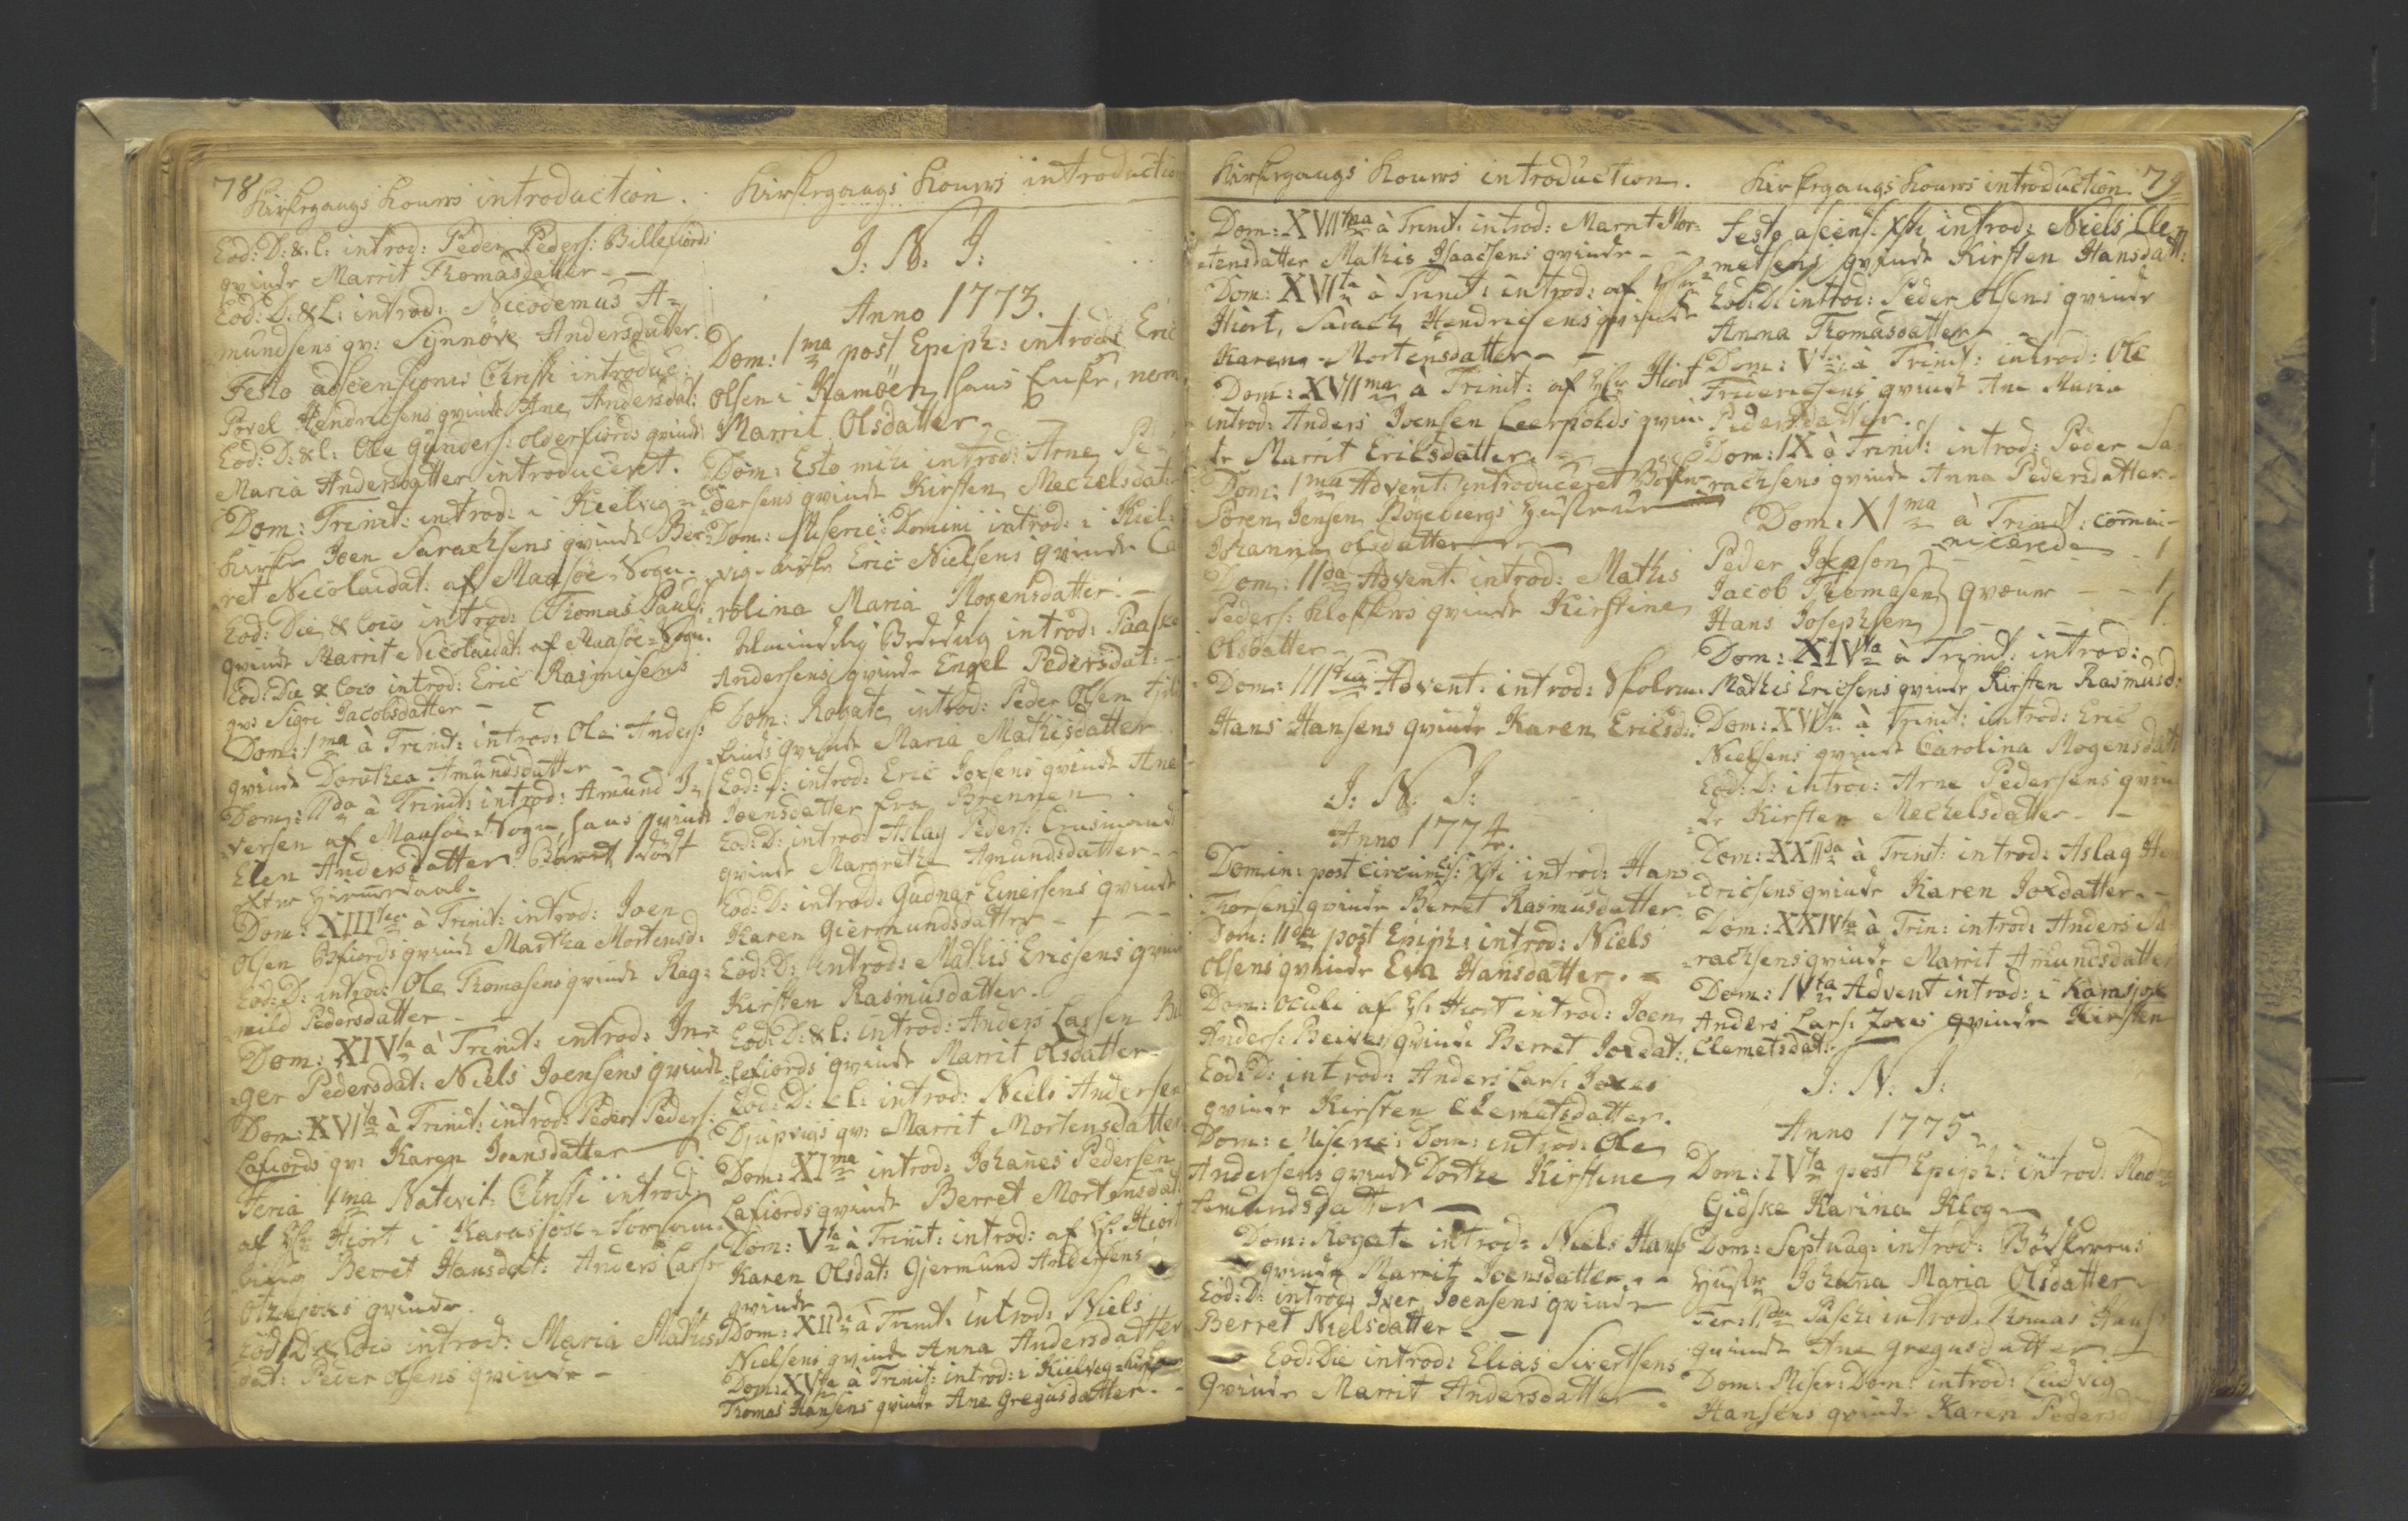 78
Kirkegangs Koners introduction.
Eod: D: & L: introd: Peder Peders: Billefiords
qvinde Marrit Thomasdatter - -
Eod: D: & L: introd: Nicodemus A=
mundsens qv: Synnöve Andersdatter.
Festo adscensionis Christi introduc:
Povel Hendricsens qvinde Ane Andersdat:
Eod: D: & L: Ole Gunders: olderfiords qvinde
Maria Andersdatter introduceret.
Dom: Trinit: introd: i Kielvig=
Kirke Joen Sarachsens qvinde Ber=
ret Nicolaidat: af Maasöe=Sogn.
Eod: Die & loco introd: Thomas Pauls:
qvinde Marrit Nicolaidat: af Maasöe=Sogn.
Eod: Die & loco introd: Eric Rasmusens
qv: Sigri Jacobsdatter -
Dom: 1ma à Trinit: introd: Ole Anders:
qvinde Dorothea Amundsdatter -
Dom: IIda à Trinit: introd: Amund I=
versen af Maasöe=Sogn, hans qvinde
Elen Andersdatter. Barnet dödt
efter Hiemmedaab.
Dom: XIIItia à Trinit: introd: Joen
Olsen fiords qvinde Martha Mortensd:
Eod: D: introd: Ole Thomasens qvinde Rag=
nild Pedersdatter -
Dom: XIVta à Trinit: introd: In=
ger Pedersdat: Niels Joensens qvinde
Dom: XVIta à Trinit: introd: Peder Peders:
Lafiords qv: Karen Joensdatter
Feria 1ma Nativit: Christi introd:
af Hr Hiort i Karasjox=Forsam=
ling Berret Hansdat: Anders Lars:
qvinde.
Eod: D: & loco introd: Maria Mathis=
dat: Peder Olsens qvinde -
Kirkegangs Koners introduction
I: N: I:
Anno 1773.
Dom: 1ma post Epiph: introd: Eric
Olsen i Kamöen, hans Enke, nem:
Marrit Olsdatter -
Dom: Esto mihi introd: Arne Pe=
dersens qvinde Kirsten Mechelsdat:
Dom: Miseric: Domini introd: i Kiel=
vig Kirke Eric Nielsens qvinde Ca=
rolina Maria Mogensdatter. -
Almindelig Bededag introd: Paaske
Andersens qvinde Engel Pedersdat: -
Dom: Rogate introd: Peder Olsen
fiords qvinde Maria Mathisdatter
Eod: D: introd: Eric Joxsens qvinde Ane
Joensdatter fra Brennen.
Eod: D: introd: Aslag Peders:
qvinde Margrethe Amundsdatter -
Eod: D: introd: Gudnar Einersens qvinde
Karen Giermundsdatter - - -
Eod: D: introd: Mathis Ericsens qvinde
Kirsten Rasmusdatter.
Eod: D: & L: introd: Anders Larsen Bil
lefiords qvinde Marrit Olsdatter -
Eod: D: & l: introd: Niels Andersen
Djupvigs qv: Marrit Mortensdatter
Dom: XIma introd: Johanes Pedersen
Lafiords qvinde Berret Mortensdat:
Dom: Vta à Trinit: introd: af Hr: Hiort
Karen Olsdat: Gjermund Andersens
qvinde
Dom: XIIda à Trinit: introd: Niels
Nielsens qvinde Anna Andersdatter
Dom: XVta à Trinit: introd: i Kielvig=Kirke
Thomas Hansens qvinde Ane Gregusdatter. -
Kirkegangs Koners introduction.
Dom: XVIIma à Trinit: introd: Marrit Mor=
tensdatter Mathis Isaacsens qvinde -
Dom: XVIta à Trinit: introd: af Hr:
Hiort, Sarach Hendricsens qvinde
Karen Mortensdatter - -
Dom: XVIIma à Trinit: af Hr Hiort
introd: Anders Joensen Leerpolds qvin=
de Marrit Erilsdatter. -
Dom: 1ma Advent: introduceret Bödker
Sören Jensen Bögebiergs Hustrue
Johanna Olsdatter
Dom: IIda Advent: introd: Mathis
Peders: Klokkers qvinde Kirstine
Olsdatter -
Dom: IIItia Advent: introd: Skolem:
Hans Hansens qvinde Karen Ericsd:
I: N: I:
Anno 1774.
Domin: post circumcis: Xsti introd: Hans
Thorsens qvinde Berret Rasmusdatter
Dom: IIda post Epiph: introd: Niels
Olsens qvinde Eva Hansdatter. =
Dom: Oculi af Hr: Hiort introd: Joen
Anders: Beives qvinde Berret Joxdat:
Eod: D: introd: Anders Lars: Joxes
qvinde Kirsten Clemetsdatter.
Dom: Miseric: Dom: introd: Ole
Andersens qvinde Dorthe Kirstine
Amundsdatter -
Dom: Rogate introd: Niels Hans:
qvinde Marrit Joensdatter - -
Eod: D: introd: Iver Joensens qvinde
Berret Nielsdatter - -
Eod: Die introd: Elias Sivertsens
Qvinde Marrit Andersdatter
Kirkegangs Koners introduction. 79
Festo ascens: Xsti introd: Niels Cle=
metsens qvinde Kirsten Hansdatt:
Eod: D: introd: Peder Olsens qvinde
Anna Thomasdatter -
Dom: Vta à Trinit: introd: Ole
Fridericsens qvinde Ane Maria
Pedersdatter.
Dom: IX à Trinit: introd: Peder Sa=
rachsens qvinde Anna Pedersdatter.
Dom: XIma à Trinit: commu-
nicerede
Peder Josepson - 1
Jacob Thomasen qvæner - - 1
Hans Josephsen - - 1.
Dom: XIVta à Trinit: introd:
Mathis Ericsens qvinde Kirsten Rasmusd:
Dom: XVIta à Trinit: introd: Eric
Nielsens qvinde Carolina Mogensdatt
Eod: D: introd: Arne Pedersens qvin
de Kirsten Mechelsdatter - -
Dom: XXIIda à Trinit: introd: Aslag Hen
dricsens qvinde Karen Joxdatter. -
Dom: XXIVta à Trin: introd: Anders Sa
rachsens qvinde Marrit Amundsdatter
Dom: IVta Advent introd: i Karasjox
Anders Lars: Joxes qvinde Kirsten
Clemetsdat:
I: N: I:
Anno 1775.
Dom: IVta post Epiph: introd: Mad:
Gidske Karina Klog -
Dom: Septuag: introd: Bödkerens
Hustr: Johanna Maria Olsdatter
Fer: IIda Pasch: introd: Thomas Hans:
qvinde Ane Gregusdatter -
Dom: Miser: Dom: introd: Ludvig
Hansens qvinde Karen Pedersd